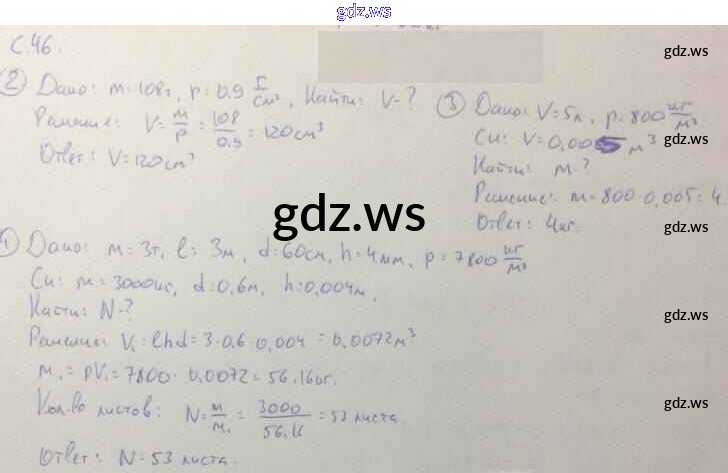 gdz.ws
С.46.
② Дано: m=108г, ρ=0.9 г/см³, Найти: V-?
Решение: V= m/ρ = 108/0.9 = 120см³
Ответ: V=120см³
③ Дано: V=5л, ρ=800 кг/м³
Си: V=0,005 м³
Найти: m-?
Решение: m=800·0,005=4
Ответ: 4кг.
① Дано: m=3т, l=3м, d=60см, h=4мм, ρ=7800 кг/м³
Си: m=3000кг, d=0.6м, h=0,004м.
Найти: N-?
Решение: V₁=lhd=3·0.6·0,004=0,0072м³
m₁=ρV₁=7800·0,0072=56,16кг.
Кол-во листов: N= m/m₁ = 3000/56.16 = 53 листа
Ответ: N=53 листа.
gdz.ws
gdz.ws
gdz.ws
gdz.ws
gdz.ws
gdz.ws